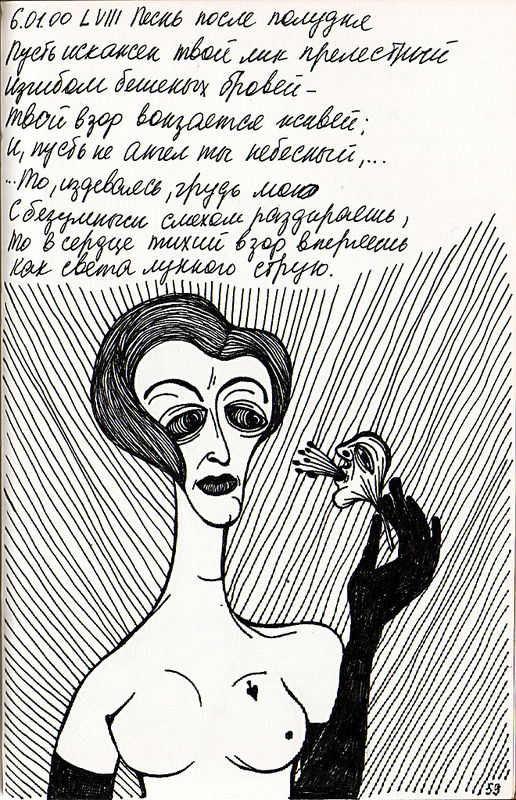 6.01.00 LVIII Песнь после полудня
Пусть искажен твой лик прелестный
Изгибом бешеных бровей –
Твой взор вонзается живей;
И, пусть не ангел ты небесный,...
...То, издеваясь, грудь мою
С безумным смехом раздираешь,
То в сердце тихий взор вперяешь
Как света лунного струю.
59